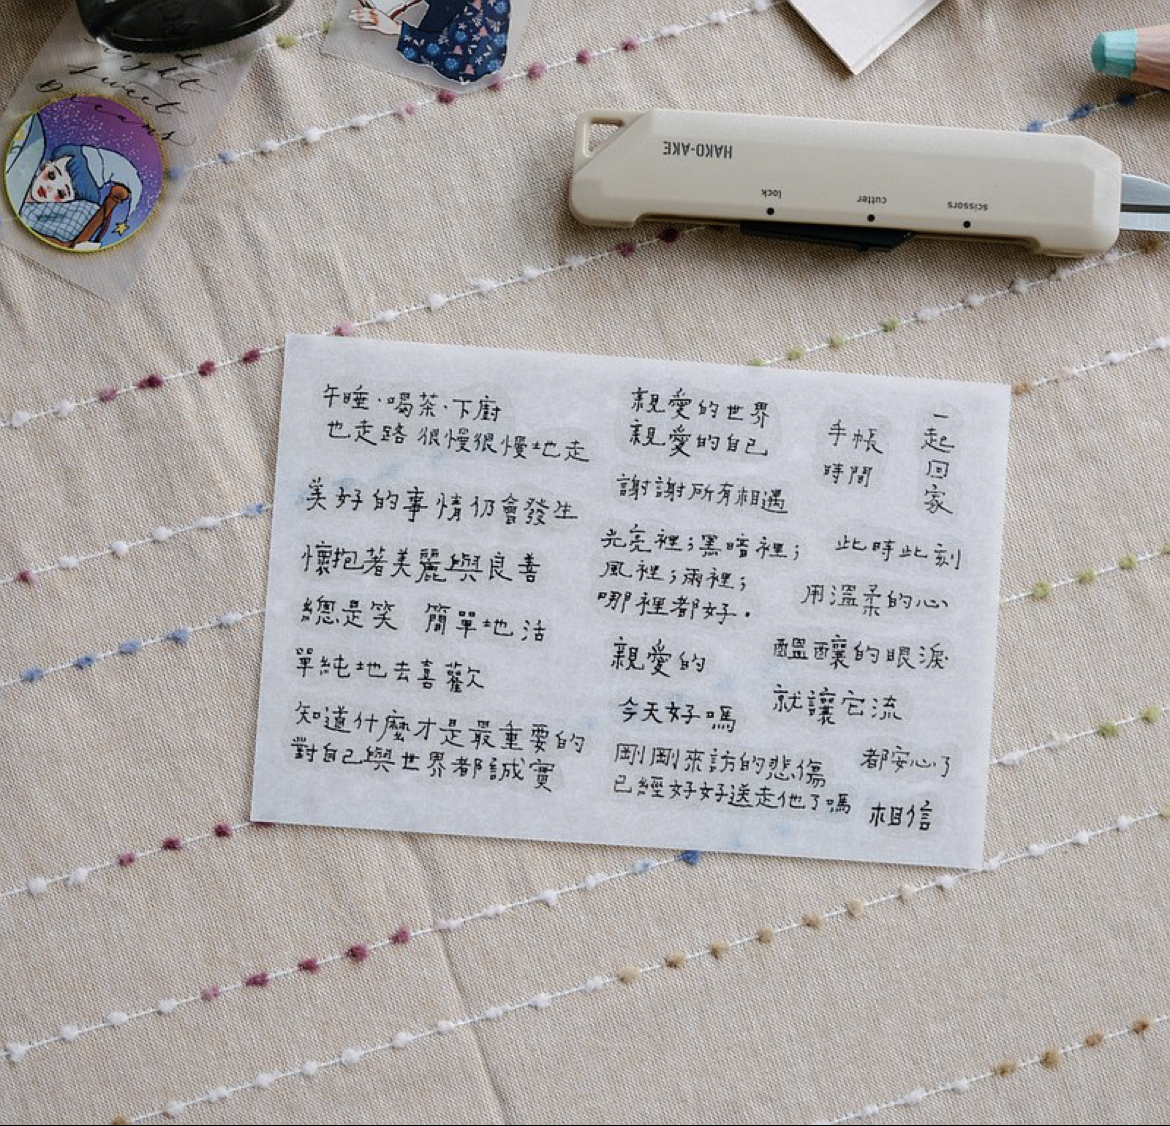 Sweet
Dreams
HAKO-AKE
lock
cutter
scissors
午睡·喝茶·下廚
也走路 很慢很慢地走
美好的事情仍會發生
懷抱著美麗與良善
總是笑 簡單地活
單純地去喜歡
知道什麼才是最重要的
對自己與世界都誠實
親愛的世界
親愛的自己
謝謝所有相遇
光亮裡；黑暗裡；
風裡；雨裡；
哪裡都好.
親愛的
今天好嗎
剛剛來訪的悲傷
已經好好送走他了嗎
手帳
時間
一起回家
此時此刻
用溫柔的心
醞釀的眼淚
就讓它流
都安心了
相信